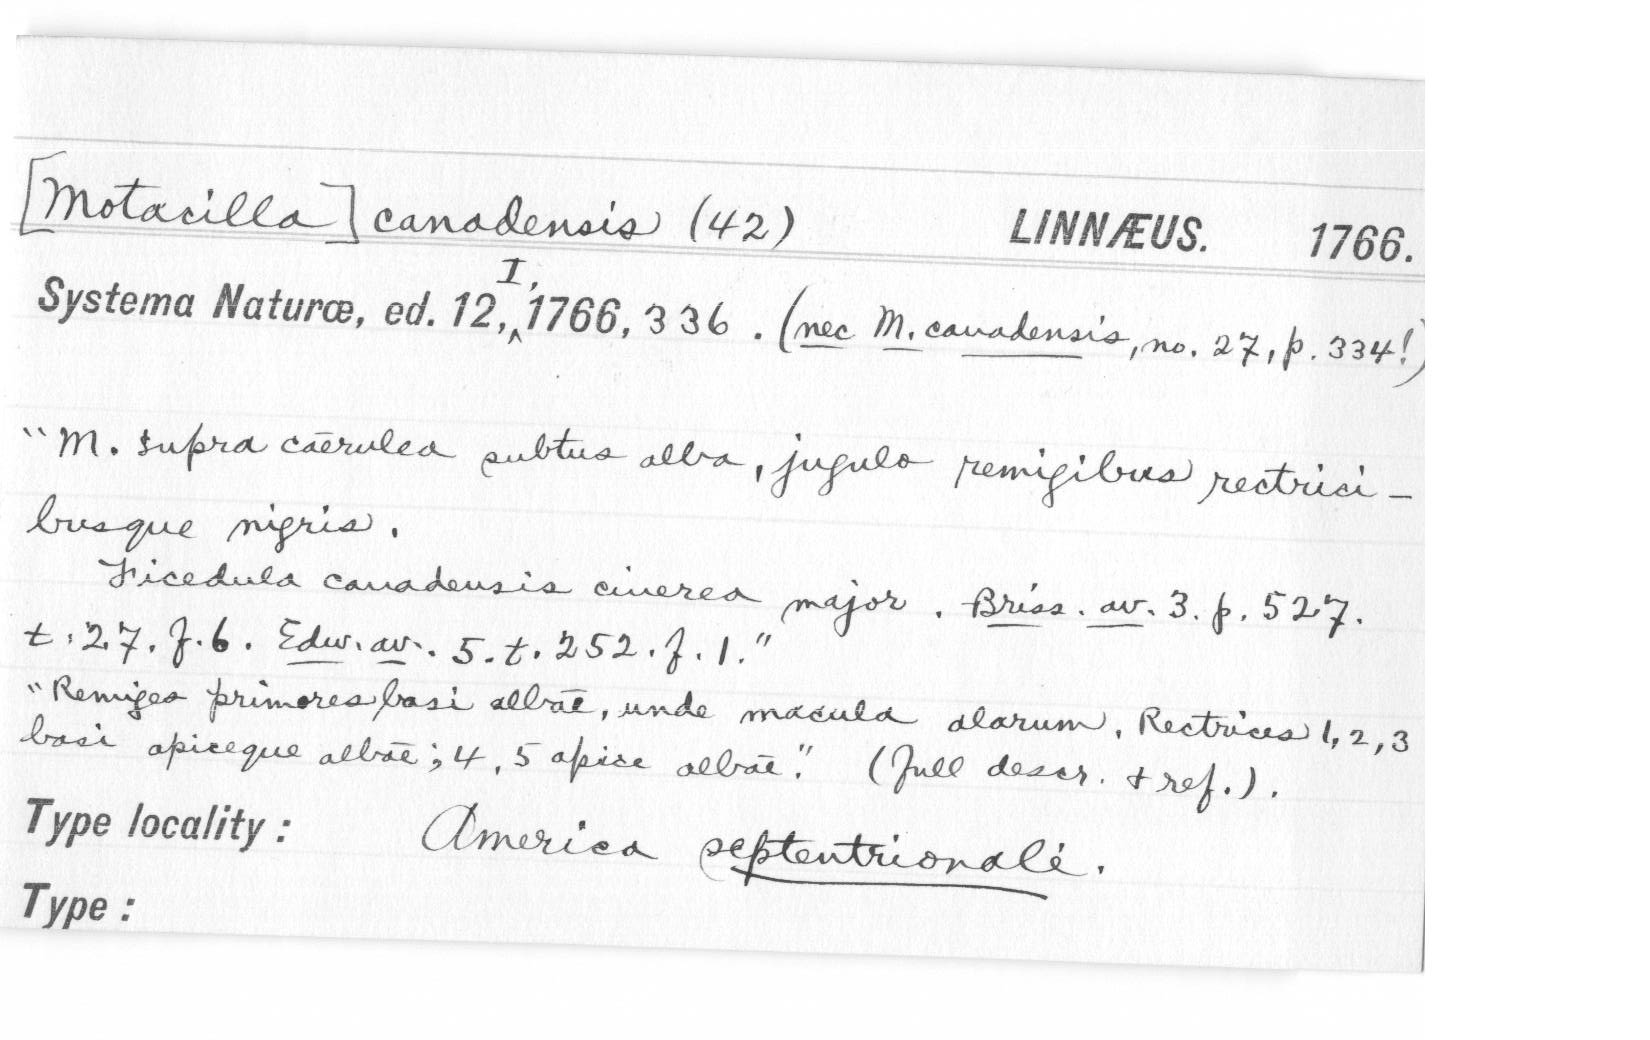 [Motacilla] canadensis (42) LINNÆUS. 1766.
Systema Naturæ, ed. 12, I, 1766, 336. (nec M. canadensis, no. 27, p. 334!)
"M. supra cāerulea subtus alba, jugulo remigibus rectrici-
busque nigris.
Ficedula canadensis cinerea major. Briss. av. 3. p. 527.
t. 27. f. 6. Edw. av. 5. t. 252. f. 1."
"Remiges primores basi albāe, unde macula alarum. Rectrices 1, 2, 3
basi apiceque albāe; 4, 5 apice albāe." (Full descr. + ref.).
Type locality: America septentrionalé.
Type: